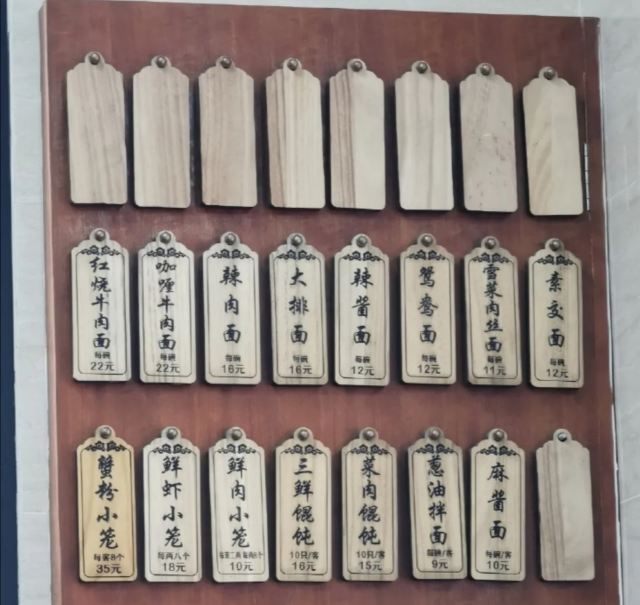 红烧牛肉面
每碗
22元
咖喱牛肉面
每碗
22元
辣肉面
每碗
16元
大排面
每碗
16元
辣酱面
每碗
12元
鸳鸯面
每碗
12元
雪菜肉丝面
每碗
11元
素交面
每碗
12元
蟹粉小笼
每客8个
35元
鲜虾小笼
每两八个
18元
鲜肉小笼
10元
三鲜馄饨
10只/客
16元
菜肉馄饨
10只/客
15元
葱油拌面
每碗/客
9元
麻酱面
每碗/客
10元